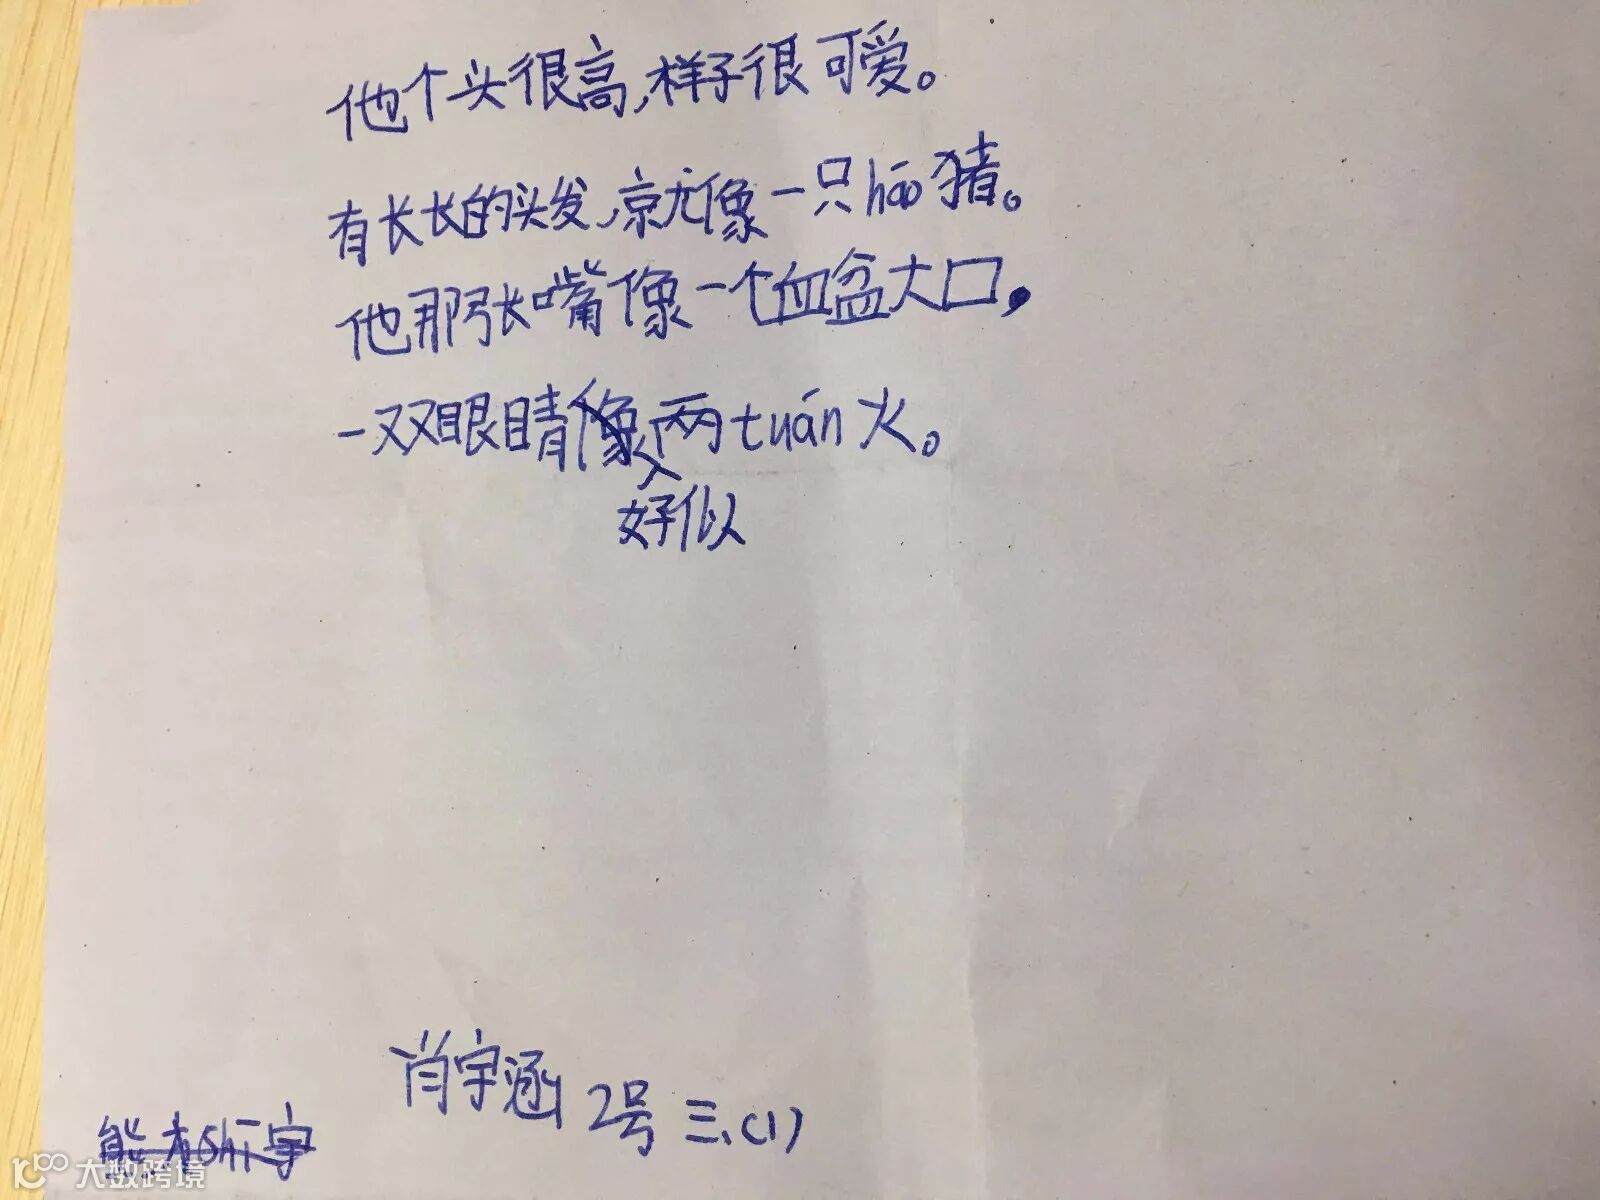 他个头很高,样子很可爱。
有长长的头发,就像一只háo猪。
他那张嘴像一个血盆大口,
一双眼睛像两tuán火。
好似
肖宇涵 2号 三、(1)
大数跨境